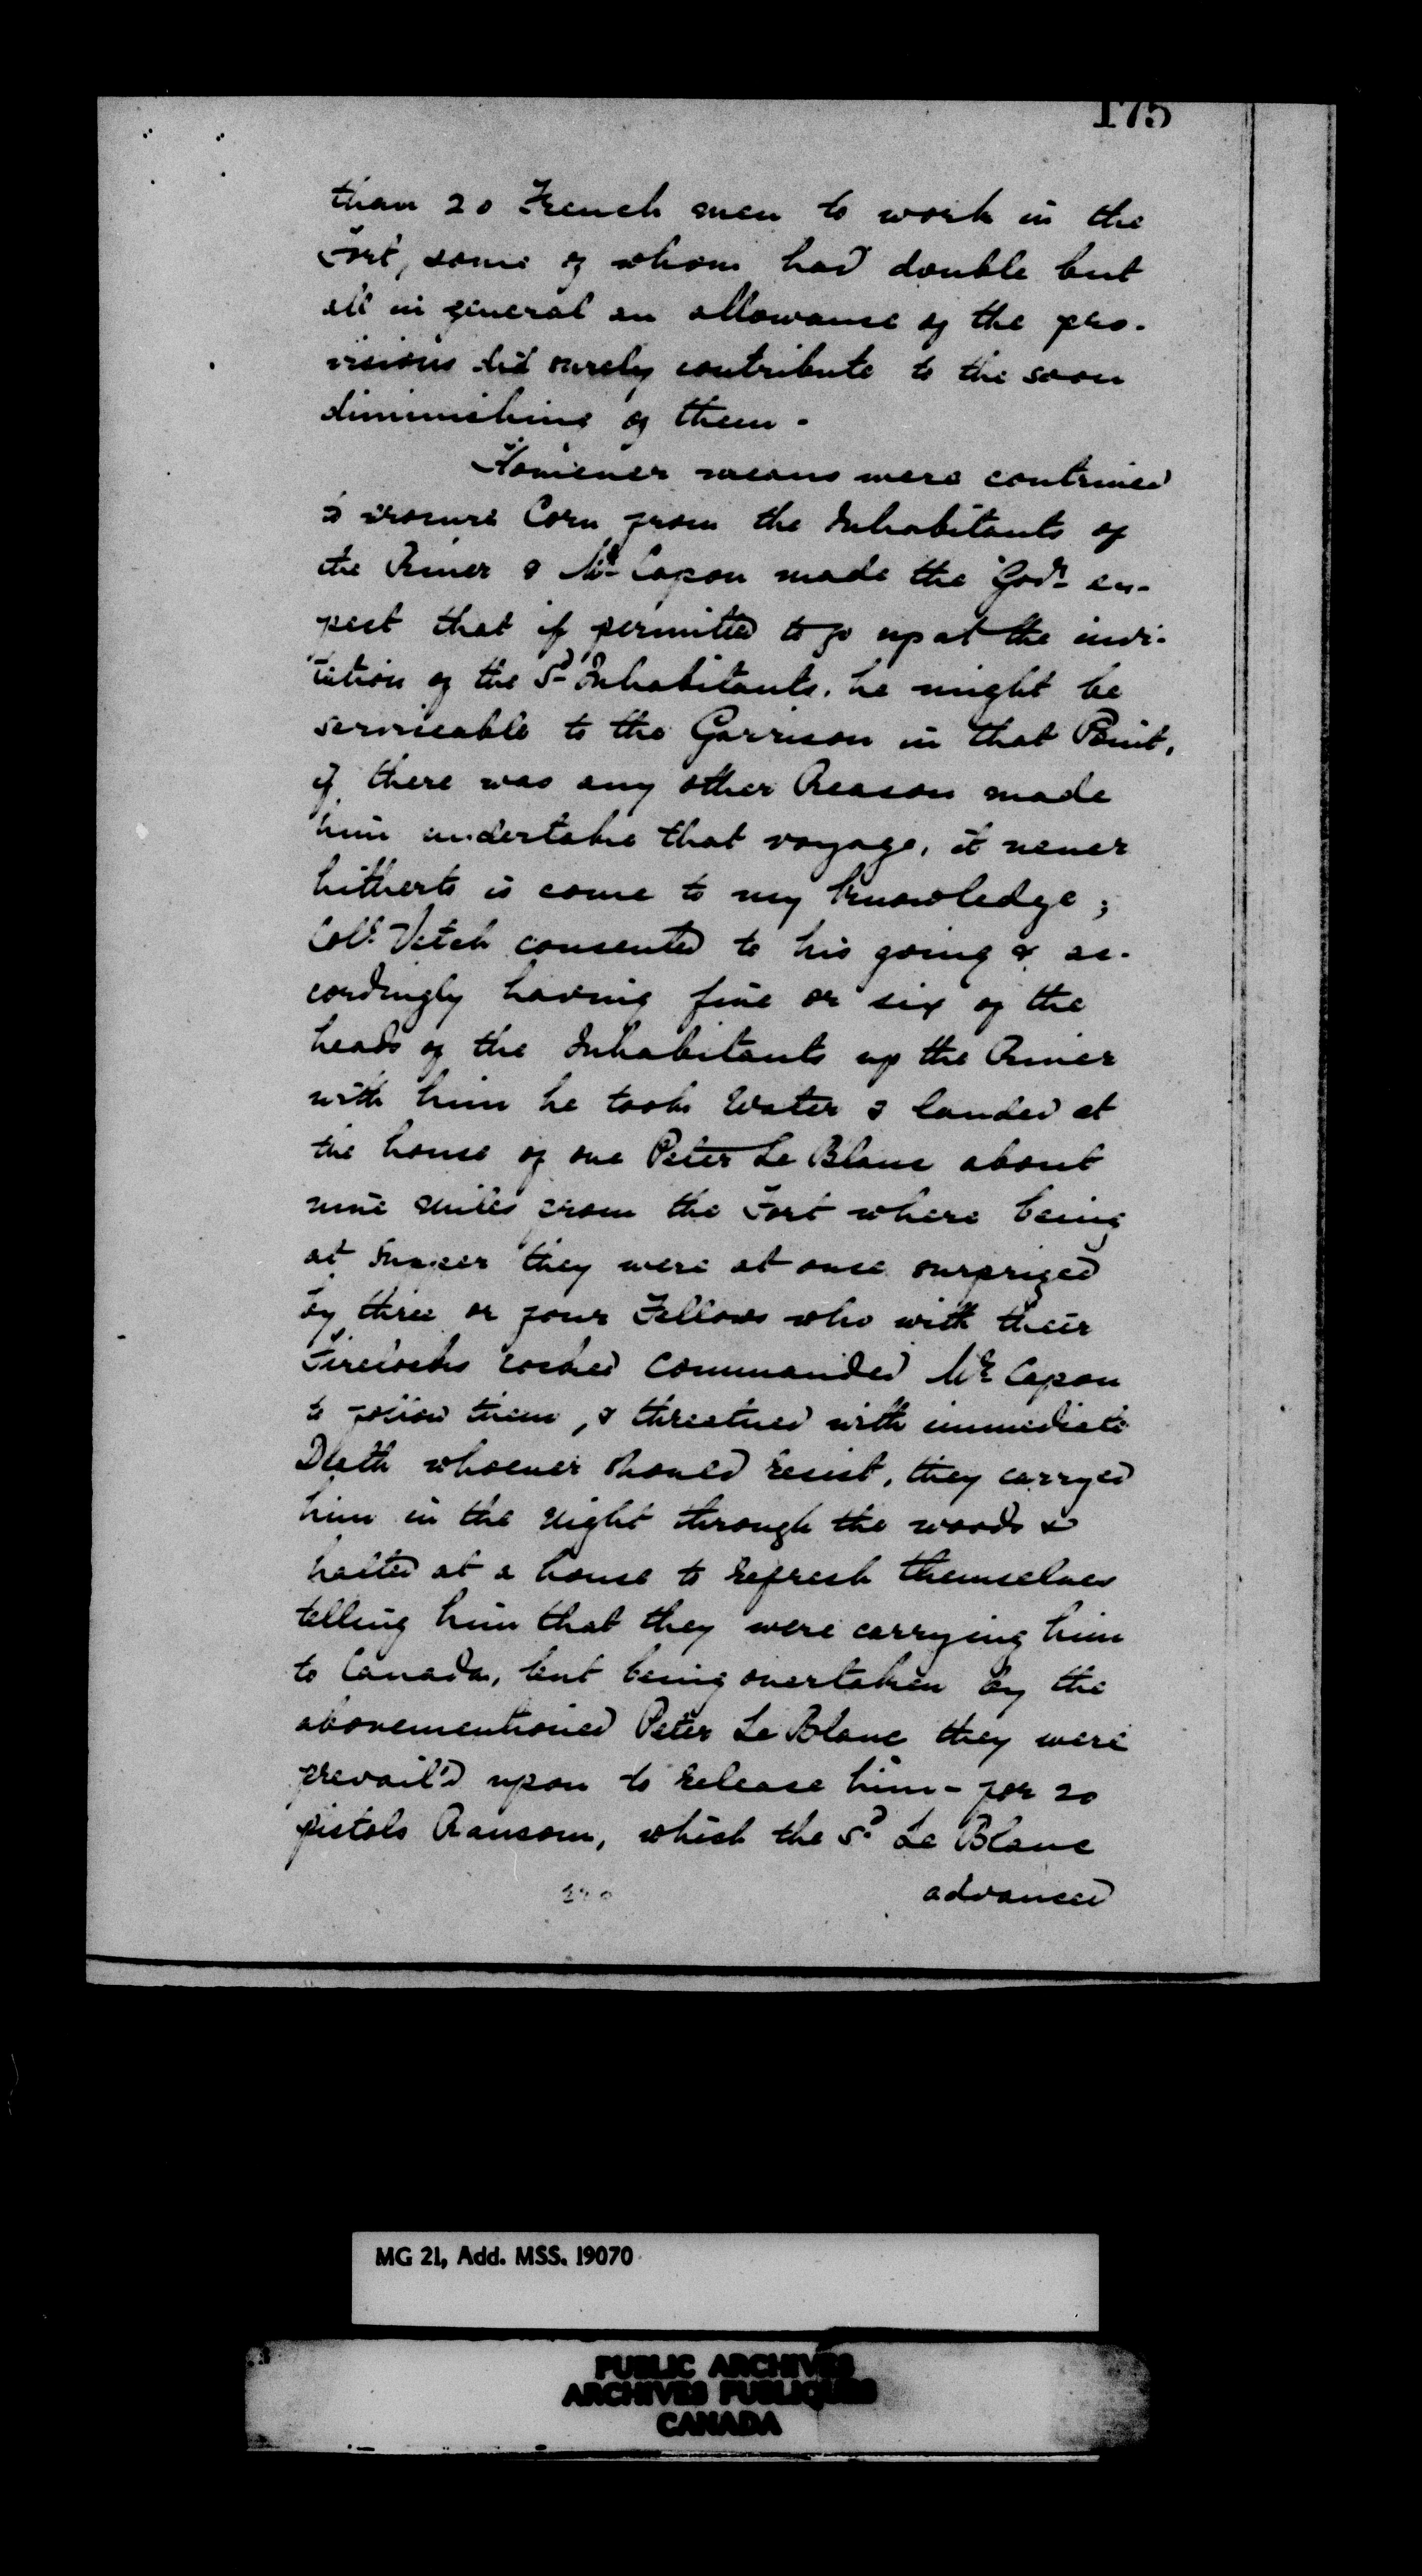 175
than 20 French men to work in the
Fort, some of whom had double but
all in general an allowance of the pro-
visions did surely contribute to the soon
diminishing of them.
However means were contrived
to procure Corn from the Inhabitants of
the River & Mr Capon made the Govr ex-
pect that if permitted to go up at the invi-
tation of the Sd Inhabitants, he might be
serviceable to the Garrison in that Point,
if there was any other Reason made
him undertake that voyage, it never
hitherto is come to my knowledge;
Coll. Vetch consented to his going & ac-
cordingly having five or six of the
heads of the Inhabitants up the River
with him he took Water & landed at
the house of one Peter Le Blanc about
nine Miles from the Fort where being
at Supper they were at once surprized
by three or four Fellows who with their
Firelocks cocked commanded Mr Capon
to follow them, & threatned with immediate
Death whoever should resist, they carryed
him in the Night through the woods &
halted at a house to refresh themselves
telling him that they were carrying him
to Canada, but being overtaken by the
abovementioned Peter Le Blanc they were
prevail'd upon to release him - for 20
pistols Ransom, which the Sd Le Blanc
advanced
MG 21, Add. MSS. 19070
PUBLIC ARCHIVES
ARCHIVES PUBLIQUES
CANADA